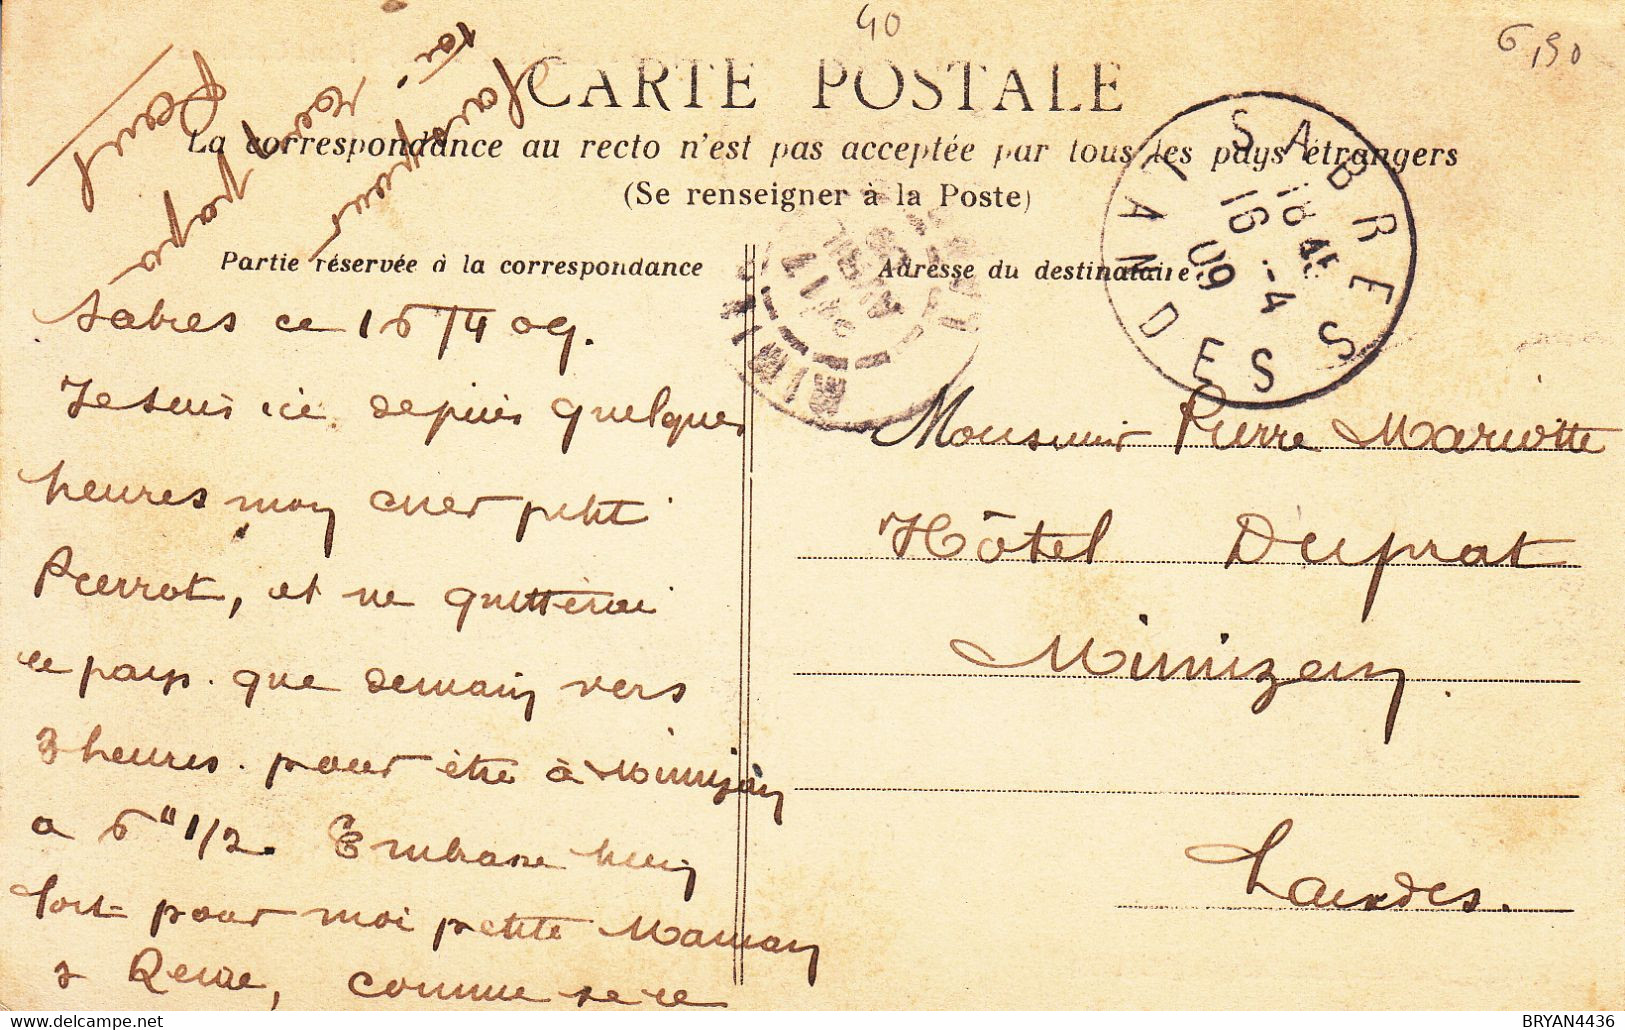 40
6,90
CARTE POSTALE
La correspondance au recto n'est pas acceptée par tous les pays étrangers
(Se renseigner à la Poste)
Partie réservée à la correspondance
Adresse du destinataire
SABRES
LANDES
18 45
16 -4
09
Sabres ce 16/4 09.
Je suis ici depuis quelques
heures mon cher petit
Pierrot, et ne quitterai
ce pays que demain vers
3 heures pour être à Mimizan
a 6" 1/2. Embrasse bien
fort pour moi petite Maman
& Renée, comme je le
fais pour
toi
ton papa
Monsieur Pierre Mariotte
Hôtel Duprat
Mimizan
Landes.
BRYAN4436